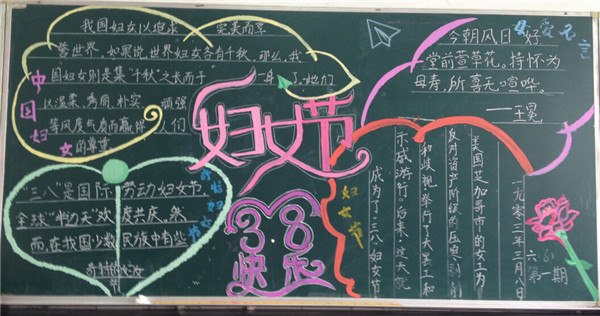 我国妇女以追求 完美而享
誉世界,如果说世界妇女各有千秋,那么,我
国妇女则是集“千秋”之长而于 一身了,她们
以温柔、秀丽、朴实 顽强
等风度气质而赢得 人们
的尊重
中国妇女
妇女节
38
快乐
母爱无言
今朝风日好
堂前萱草花,持杯为
母寿,所喜无喧哗。
——王冕
“三八”是国际劳动妇女节
全球“半边天”欢度共庆,然
而,在我国少数民族中有些
奇特的妇女
节
妇女节
一九〇三年三月八日
美国芝加哥市的女工为
反对资产阶级的压迫、剥削
和歧视,举行了大罢工和
示威游行。后来,这天就
成为了三八妇女节
六.6
第一期